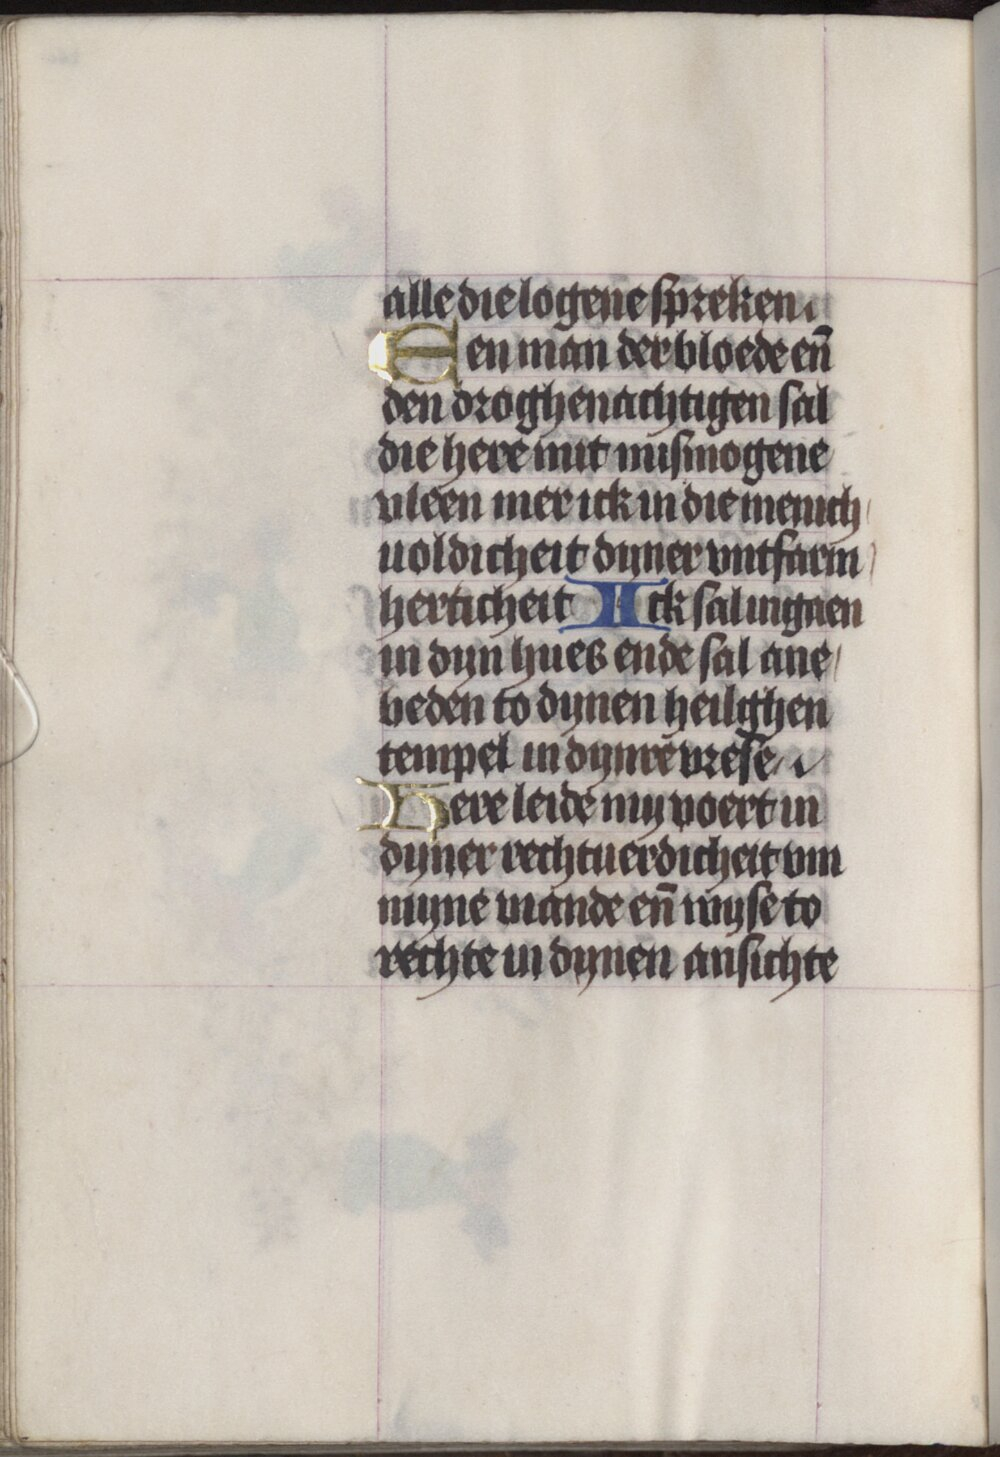 alle die logene spreken.
Een man der bloede en̄
den droghenachtigen sal
die here mit mismogene
vleen mer ick in die menich
uoldicheit dyner vntfarm
herticheit Ick sal ingaen
in dyn hues ende sal ane
beden to dynen heilighen
tempel in dynre vrese
Here leide my voert in
dyner rechtuerdicheit vm
myne viande en̄ wyse to
rechte in dynen ansichte